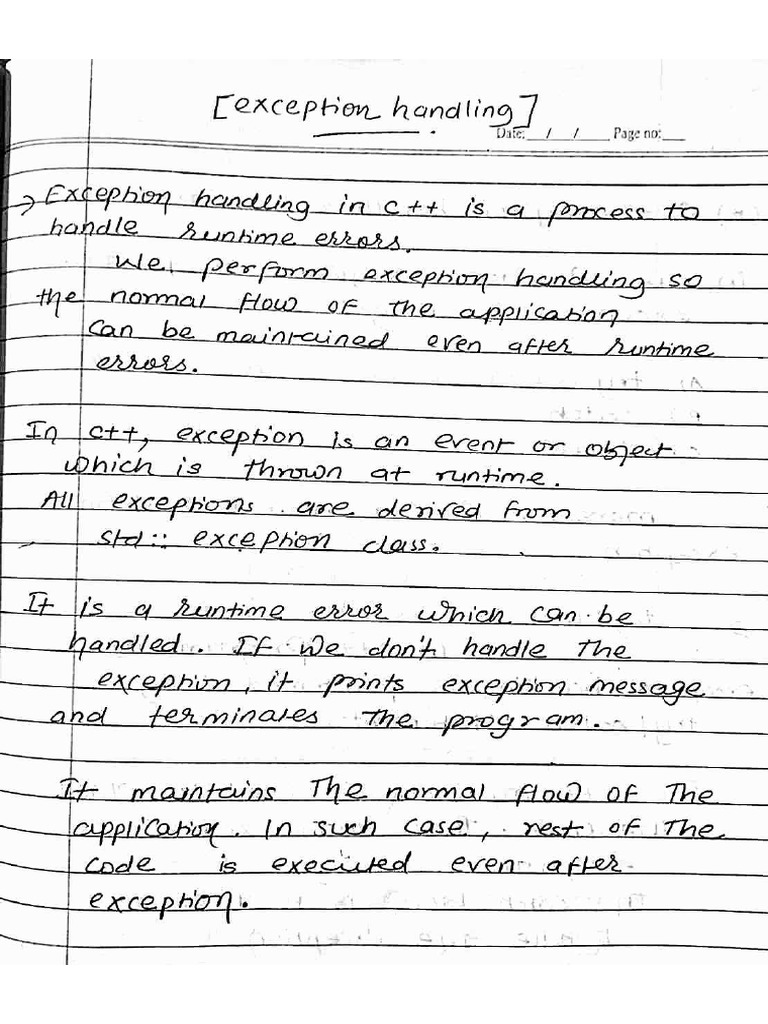 [exception handling]
Date: __/__/____ Page no: ___
→ Exception handling in c++ is a process to
handle runtime errors.
We perform exception handling so
the normal flow of the application
can be maintained even after runtime
errors.
In c++, exception is an event or object
which is thrown at runtime.
All exceptions are derived from
std:: exception class.
It is a runtime error which can be
handled. If we don't handle the
exception, it prints exception message
and terminates the program.
It maintains The normal flow of The
application. In such case, rest of The
code is executed even after
exception.